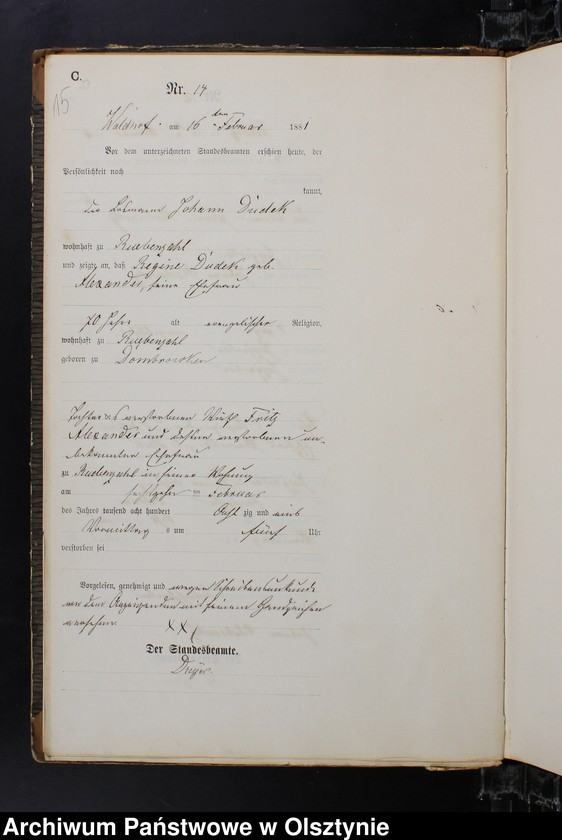 C.
15
Nr. 14
Waldhof am 16 ten Februar 1881
Vor dem unterzeichneten Standesbeamten erschien heute, der
Persönlichkeit nach
kannt,
der Losmann Johann Dudek
wohnhaft zu Ruebenzahl
und zeigte an, daß Regine Dudek geb.
Alexander, seine Ehefrau
70 Jahre alt evangelischer Religion,
wohnhaft zu Ruebenzahl
geboren zu Dombrowken
Tochter des verstorbenen Wirth Fritz
Alexander und dessen verstorbenen un-
bekannten Ehefrau
zu Ruebenzahl in seiner Wohnung
am sechszehn ten Februar
des Jahres tausend acht hundert Acht zig und eins
Vormittags um fünf Uhr
verstorben sei
Vorgelesen, genehmigt und wegen Schreibensunkunde
von dem Anzeigenden mit seinem Handzeichen
versehen
XXX
Der Standesbeamte.
Archiwum Państwowe w Olsztynie